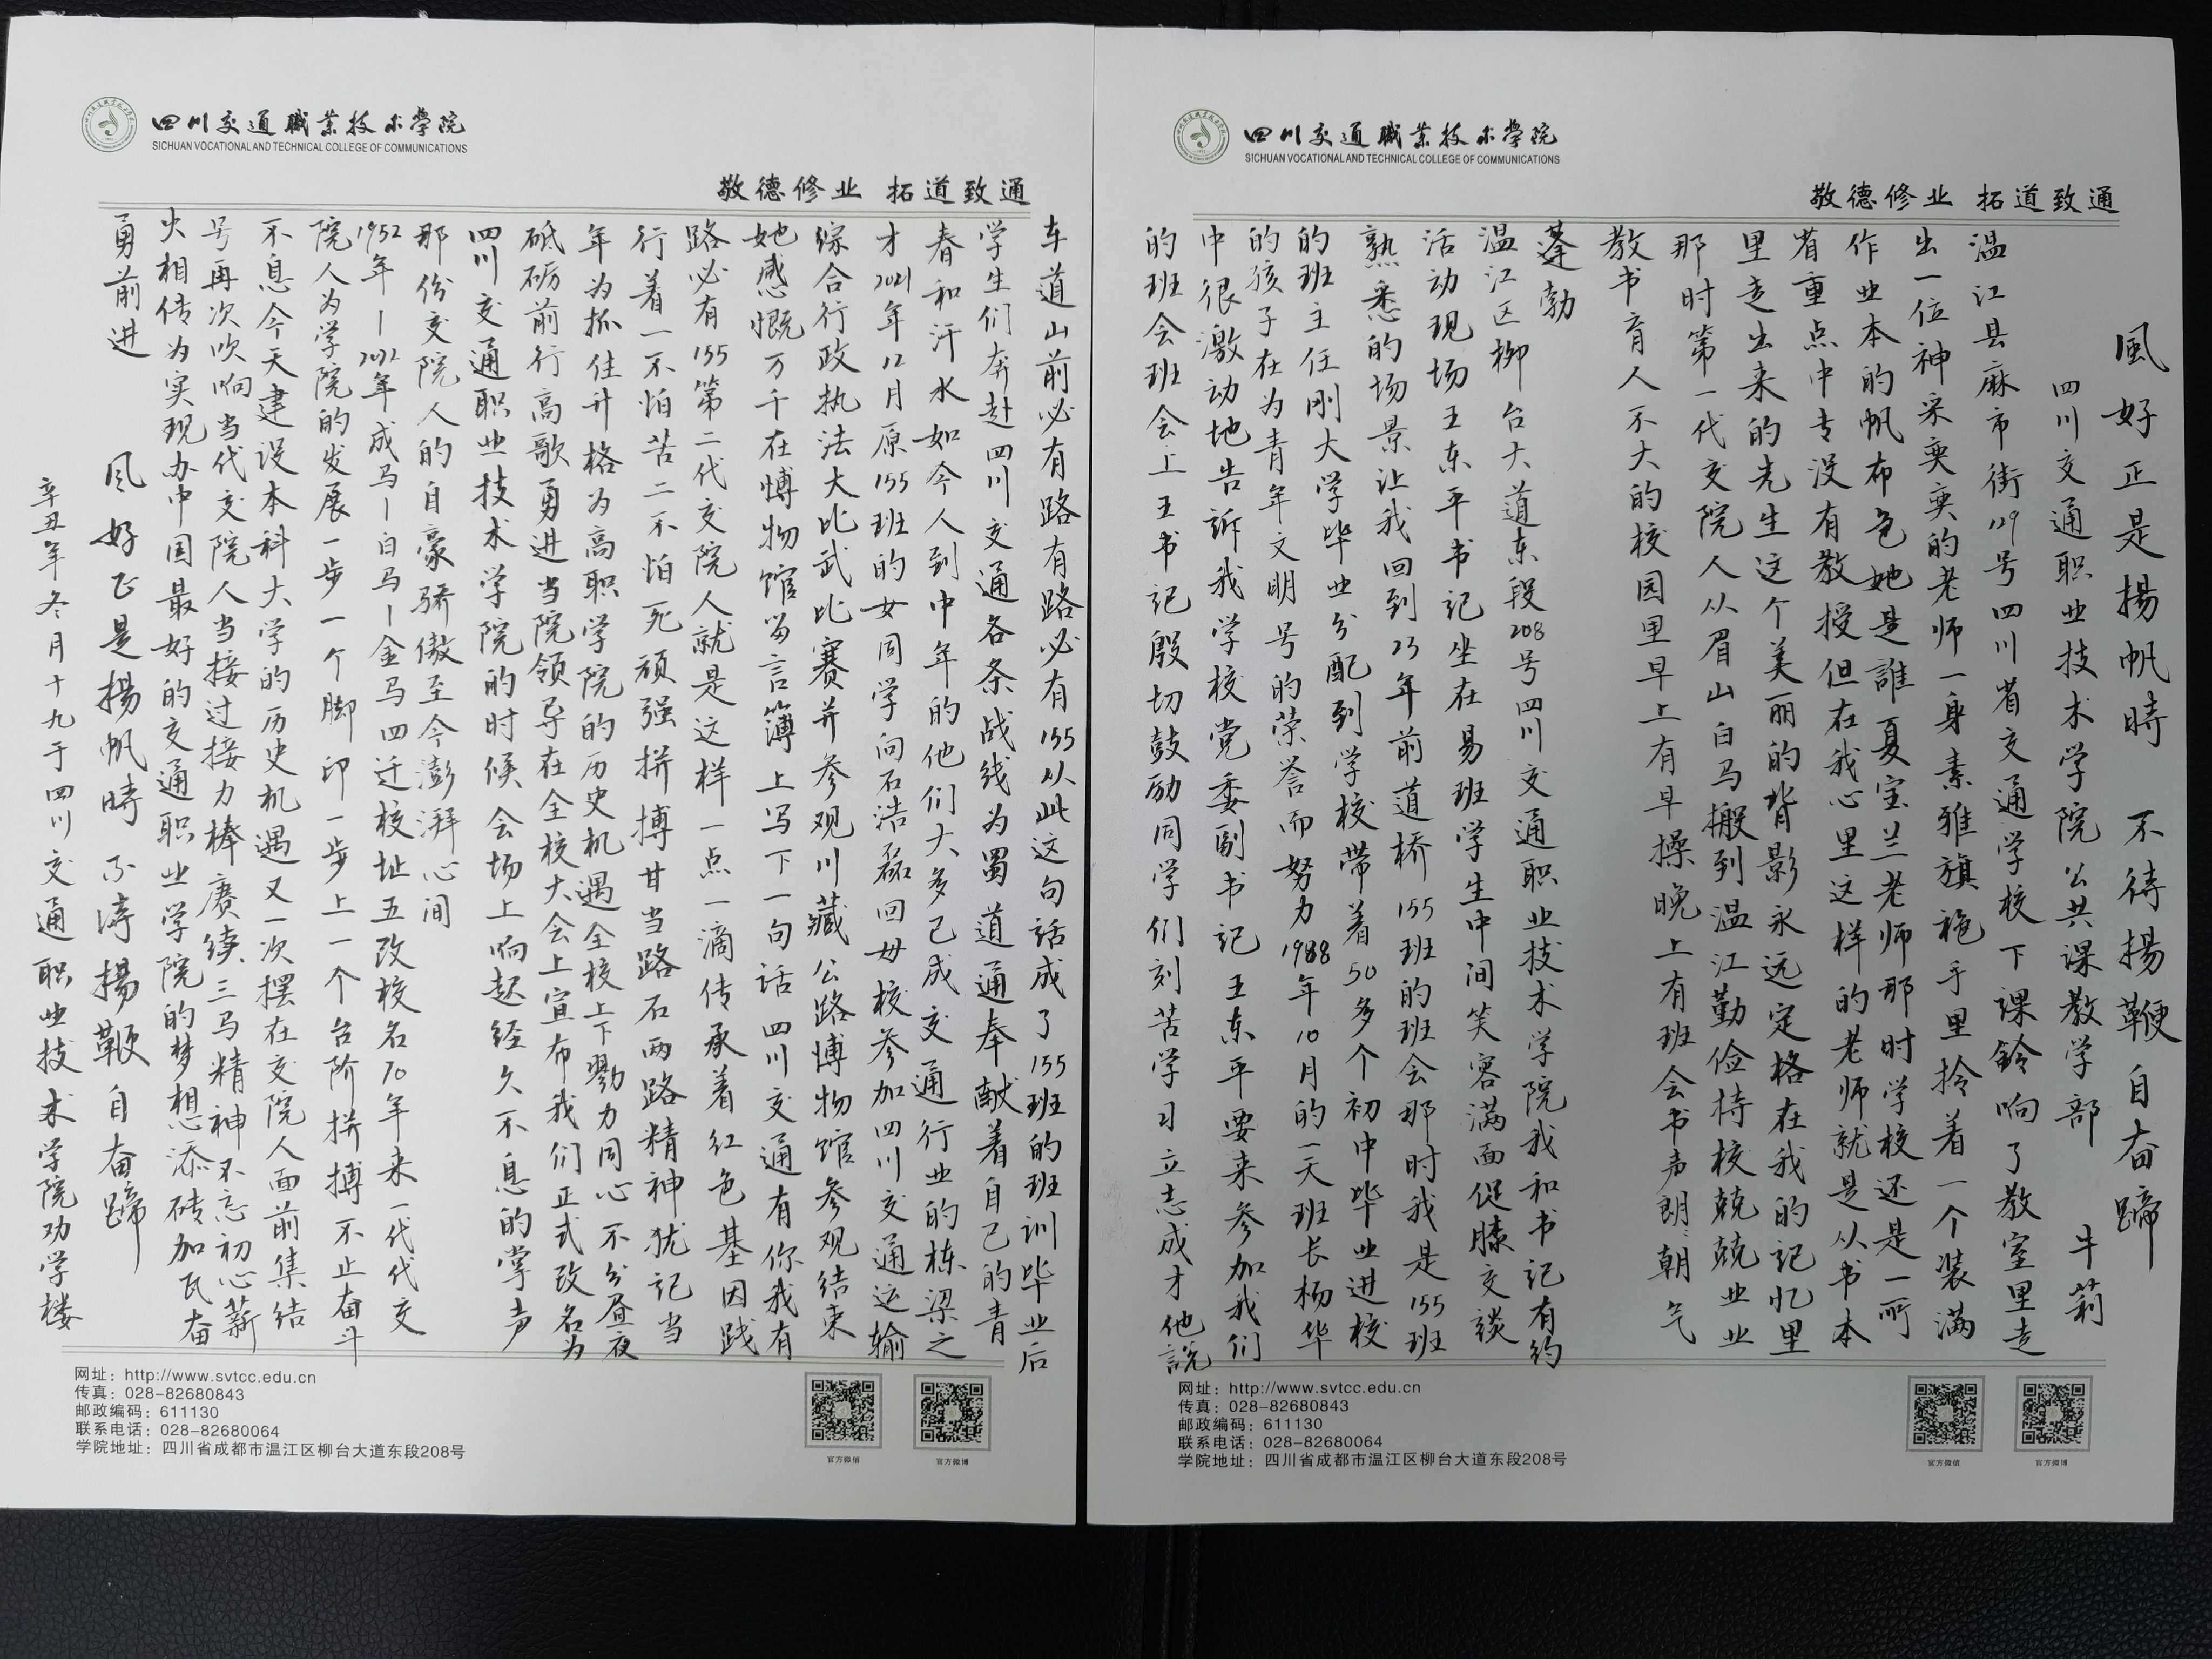 四川交通職業技术學院
SICHUAN VOCATIONAL AND TECHNICAL COLLEGE OF COMMUNICATIONS
敬德修业 拓道致通
風好正是揚帆時 不待揚鞭自奋蹄
四川交通职业技术学院公共课教学部 牛莉
温江县麻市街129号四川省交通学校下课鈴响了教室里走
出一位神采奕奕的老师一身素雅旗袍手里拎着一个装满
作业本的帆布包她是誰夏宝兰老师那时学校还是一所
省重点中专没有教授但在我心里这样的老师就是从书本
里走出来的先生这个美丽的背影永远定格在我的记忆里
那时第一代交院人从眉山白马搬到温江勤俭持校兢兢业业
教书育人不大的校园里早上有早操晚上有班会书声朗朝气
蓬勃
温江区柳台大道东段208号四川交通职业技术学院我和书记有约
活动现场王东平书记坐在易班学生中间笑容满面促膝交谈
熟悉的场景让我回到23年前道桥155班的班会那时我是155班
的班主任刚大学毕业分配到学校带着50多个初中毕业进校
的孩子在为青年文明号的荣誉而努力1988年10月的一天班长杨华
中很激动地告訴我学校党委副书记王东平要来参加我们
的班会班会上王书记殷切鼓励同学们刻苦学习立志成才他説
网址：http://www.svtcc.edu.cn
传真：028-82680843
邮政编码：611130
联系电话：028-82680064
学院地址：四川省成都市温江区柳台大道东段208号
官方微信
官方微博
四川交通職業技术學院
SICHUAN VOCATIONAL AND TECHNICAL COLLEGE OF COMMUNICATIONS
敬德修业 拓道致通
车道山前必有路有路必有155从此这句话成了155班的班训毕业后
学生们奔赴四川交通各条战线为蜀道通奉献着自己的青
春和汗水如今人到中年的他们大多已成交通行业的栋梁之
才2021年12月原155班的女同学向石浩磊回母校参加四川交通运输
综合行政执法大比武比赛并参观川藏公路博物馆参观结束
她感慨万千在博物馆留言簿上写下一句话四川交通有你我有
路必有155第二代交院人就是这样一点一滴传承着红色基因践
行着一不怕苦二不怕死顽强拼搏甘当路石两路精神犹记当
年为抓住升格为高职学院的历史机遇全校上下勠力同心不分昼夜
砥砺前行高歌勇进当院领导在全校大会上宣布我们正式改名为
四川交通职业技术学院的时候会场上响起经久不息的掌声
那份交院人的自豪骄傲至今澎湃心间
1952年—2022年成马—白马—金马四迁校址五改校名70年来一代代交
院人为学院的发展一步一个脚印一步上一个台阶拼搏不止奋斗
不息今天建设本科大学的历史机遇又一次摆在交院人面前集结
号再次吹响当代交院人当接过接力棒赓续三马精神不忘初心薪
火相传为实现办中国最好的交通职业学院的梦想添砖加瓦奋
勇前进
风好正是揚帆時 不待揚鞭自奋蹄
辛丑年冬月十九于四川交通职业技术学院劝学楼
网址：http://www.svtcc.edu.cn
传真：028-82680843
邮政编码：611130
联系电话：028-82680064
学院地址：四川省成都市温江区柳台大道东段208号
官方微信
官方微博